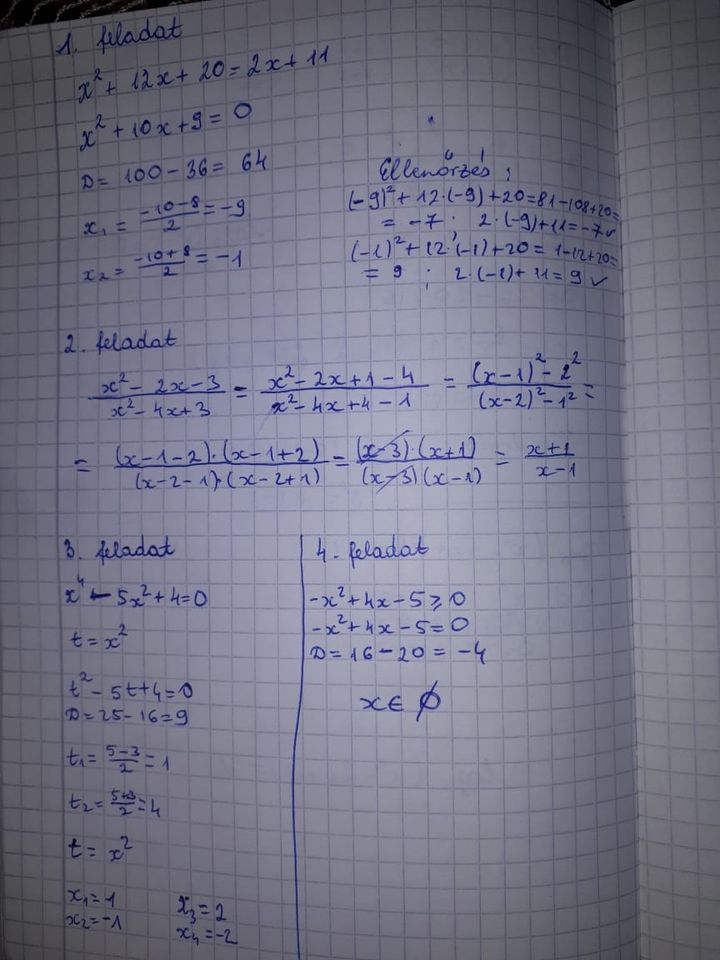 1. feladat
x² + 12x + 20 = 2x + 11
x² + 10x + 9 = 0
D = 100 - 36 = 64
x₁ = (-10-8)/2 = -9
x₂ = (-10+8)/2 = -1
Ellenőrzés:
(-9)² + 12·(-9) + 20 = 81 - 108 + 20 =
= -7 ; 2·(-9) + 11 = -7 ✓
(-1)² + 12·(-1) + 20 = 1 - 12 + 20 =
= 9 ; 2·(-1) + 11 = 9 ✓
2. feladat
(x² - 2x - 3)/(x² - 4x + 3) = (x² - 2x + 1 - 4)/(x² - 4x + 4 - 1) = ((x-1)² - 2²)/((x-2)² - 1²) =
= ((x-1-2)·(x-1+2))/((x-2-1)·(x-2+1)) = ((x-3)·(x+1))/((x-3)(x-1)) = (x+1)/(x-1)
3. feladat
x⁴ - 5x² + 4 = 0
t = x²
t² - 5t + 4 = 0
D = 25 - 16 = 9
t₁ = (5-3)/2 = 1
t₂ = (5+3)/2 = 4
t = x²
x₁ = 1
x₂ = -1
x₃ = 2
x₄ = -2
4. feladat
-x² + 4x - 5 ≥ 0
-x² + 4x - 5 = 0
D = 16 - 20 = -4
x ∈ ∅